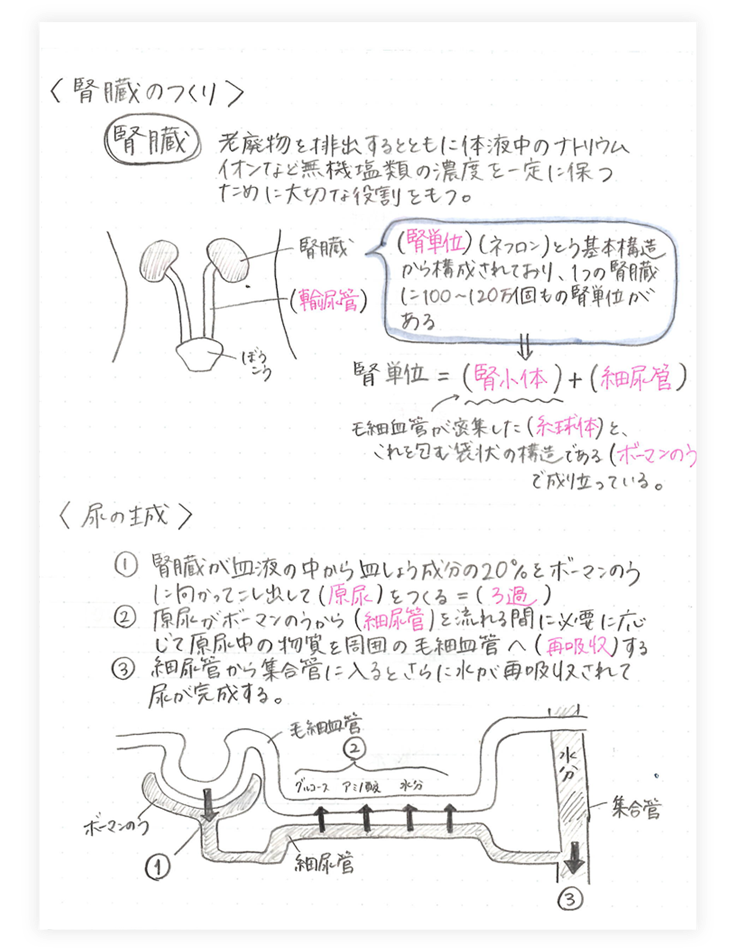 〈腎臓のつくり〉
腎臓
老廃物を排出するとともに体液中のナトリウム
イオンなど無機塩類の濃度を一定に保つ
ために大切な役割をもつ。
腎臓
(輸尿管)
ぼう
こう
(腎単位)(ネフロン)とう基本構造
から構成されており、1つの腎臓
に100~120万個もの腎単位が
ある
腎単位=(腎小体)+(細尿管)
毛細血管が密集した(糸球体)と、
これを包む袋状の構造である(ボーマンのう
で成り立っている。
〈尿の生成〉
① 腎臓が血液の中から血しょう成分の20%をボーマンのう
に向かってこし出して(原尿)をつくる=(ろ過)
② 原尿がボーマンのうから(細尿管)を流れる間に必要に応
じて原尿中の物質を周囲の毛細血管へ(再吸収)する
③ 細尿管から集合管に入るとさらに水が再吸収されて
尿が完成する。
毛細血管
②
グルコース アミノ酸 水分
水分
ボーマンのう
集合管
①
細尿管
③